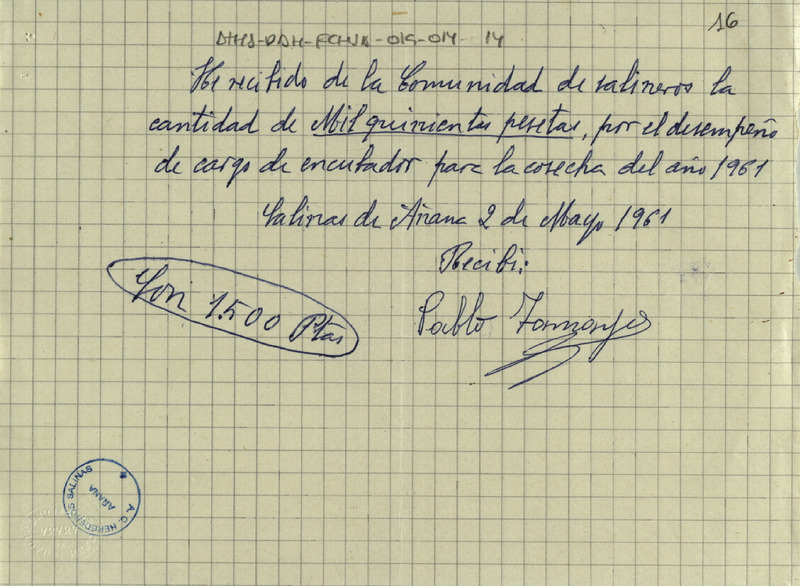 16
He recibido de la Comunidad de salineros la
cantidad de Mil quinientas pesetas, por el desempeño
de cargo de encubador para la cosecha del año 1961
Salinas de Añana 2 de Mayo 1961
Recibi:
Son 1.500 Ptas
Pablo
A. C. HEREDEROS SALINAS
AÑANA